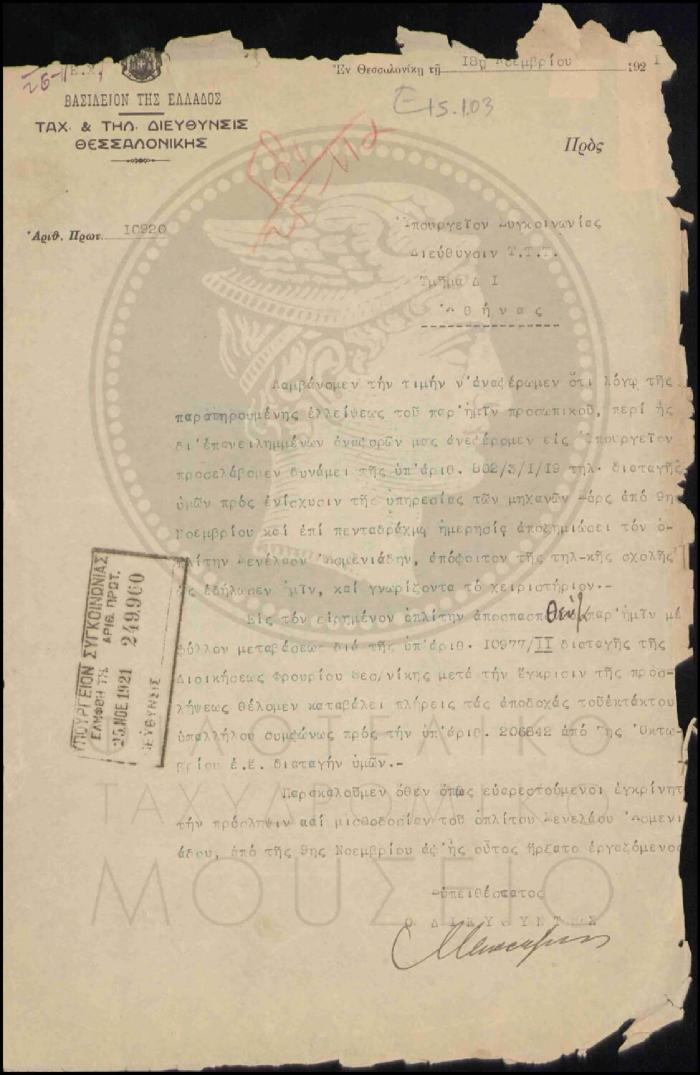 Ἐν Θεσσαλονίκῃ τῇ 18ῃ Νοεμβρίου 1921
ΒΑΣΙΛΕΙΟΝ ΤΗΣ ΕΛΛΑΔΟΣ
ΤΑΧ. & ΤΗΛ. ΔΙΕΥΘΥΝΣΙΣ
ΘΕΣΣΑΛΟΝΙΚΗΣ
Ε15.1.03
Πρὸς
Ἀριθ. Πρωτ. 10920
Ὑπουργεῖον Συγκοινωνίας
Διεύθυνσιν Τ.Τ.Τ.
Τμῆμα Δ Ι
Ἀθήνας
Λαμβάνομεν τήν τιμήν ν'ἀναφέρωμεν ὅτι λόγῳ τῆς
παρατηρουμένης ἐλλείψεως τοῦ παρ'ἡμῖν προσωπικοῦ, περί ἧς
δι'ἐπανειλημμένων ἀναφορῶν μας ἀνεφέρομεν εἰς Ὑπουργεῖον
προσελάβομεν δυνάμει τῆς ὑπ'ἀριθ. 802/3/1/19 τηλ. διαταγῆς
ὑμῶν πρός ἐνίσχυσιν τῆς ὑπηρεσίας τῶν μηχανῶν ἀπό 9ης
Νοεμβρίου καί ἐπί πενταδράχμῳ ἡμερησίᾳ ἀποζημιώσει τόν ὁ-
πλίτην Μενέλαον Ἀσμενιάδην, ἀπόφοιτον τῆς τηλ-κῆς σχολῆς
ὡς ἐδήλωσεν ἡμῖν, καί γνωρίζοντα τό χειριστήριον.-
Εἰς τόν εἰρημένον ὁπλίτην ἀποσπασθέντα παρ'ἡμῖν μέ
φύλλον μεταβάσεως διά τῆς ὑπ'ἀριθ. 10977/ΙΙ διαταγῆς τῆς
Διοικήσεως Φρουρίου Θεσ/νίκης μετά τήν ἔγκρισιν τῆς προσ-
λήψεως θέλομεν καταβάλει πλήρεις τάς ἀποδοχάς τοῦ ἐκτάκτου
ὑπαλλήλου συμφώνως πρός τήν ὑπ'ἀριθ. 206842 ἀπό 7ης Ὀκτω-
βρίου ἐ.ἔ. διαταγήν ὑμῶν.-
Παρακαλοῦμεν ὅθεν ὅπως εὐαρεστούμενοι ἐγκρίνητ
τήν πρόσληψιν καί μισθοδοσίαν τοῦ ὁπλίτου Μενελάου Ἀσμενι
άδου, ἀπό τῆς 9ης Νοεμβρίου ἀφ'ἧς οὗτος ἤρξατο ἐργαζόμενος
Εὐπειθέστατος
Ο ΔΙΕΥΘΥΝΤΗΣ
ΥΠΟΥΡΓΕΙΟΝ ΣΥΓΚΟΙΝΩΝΙΑΣ
ΕΛΗΦΘΗ ΤΗ ΑΡΙΘ. ΠΡΩΤ.
25.ΝΟΕ.1921 249.960
ΔΙΕΥΘΥΝΣΙΣ
ΦΙΛΟΤΕΛΙΚΟ
ΤΑΧΥΔΡΟΜΙΚΟ
ΜΟΥΣΕΙΟ